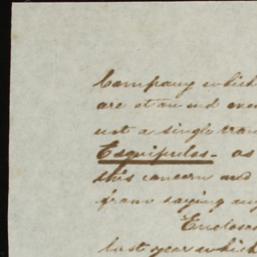 Company which
are at an end
not a single
Esquipulas - as
this concern and
from saying any
Enclosed
last year which